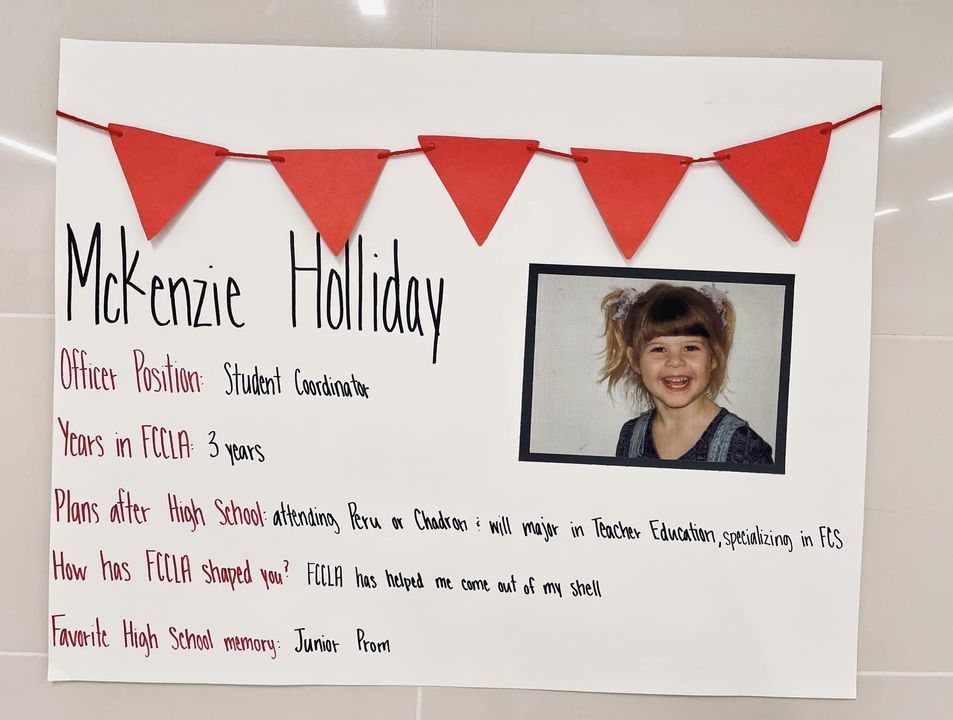 McKenzie Holliday
Officer Position: Student Coordinator
Years in FCCLA: 3 years
Plans after High School: attending Peru or Chadron & will major in Teacher Education, specializing in FCS
How has FCCLA shaped you? FCCLA has helped me come out of my shell
Favorite High School memory: Junior Prom